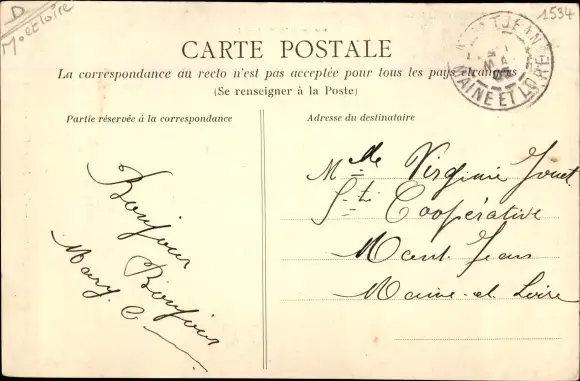 D
M. et Loire
1534
MONTJEAN
MAINE ET LOIRE
CARTE POSTALE
La correspondance au recto n'est pas acceptée pour tous les pays étrangers
(Se renseigner à la Poste)
Partie réservée à la correspondance
Bonjour
Bonjour
Mary. C
Adresse du destinataire
Melle Virginie Jouet
Sté Coopérative
Mont Jean
Maine-et-Loire